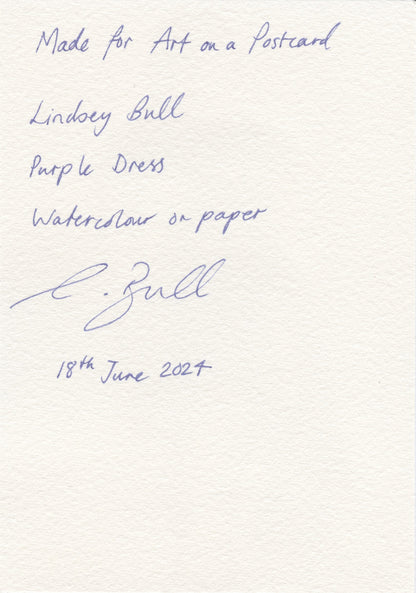 Made for Art on a Postcard
Lindsey Bull
Purple Dress
Watercolour on paper
L. Bull
18th June 2024